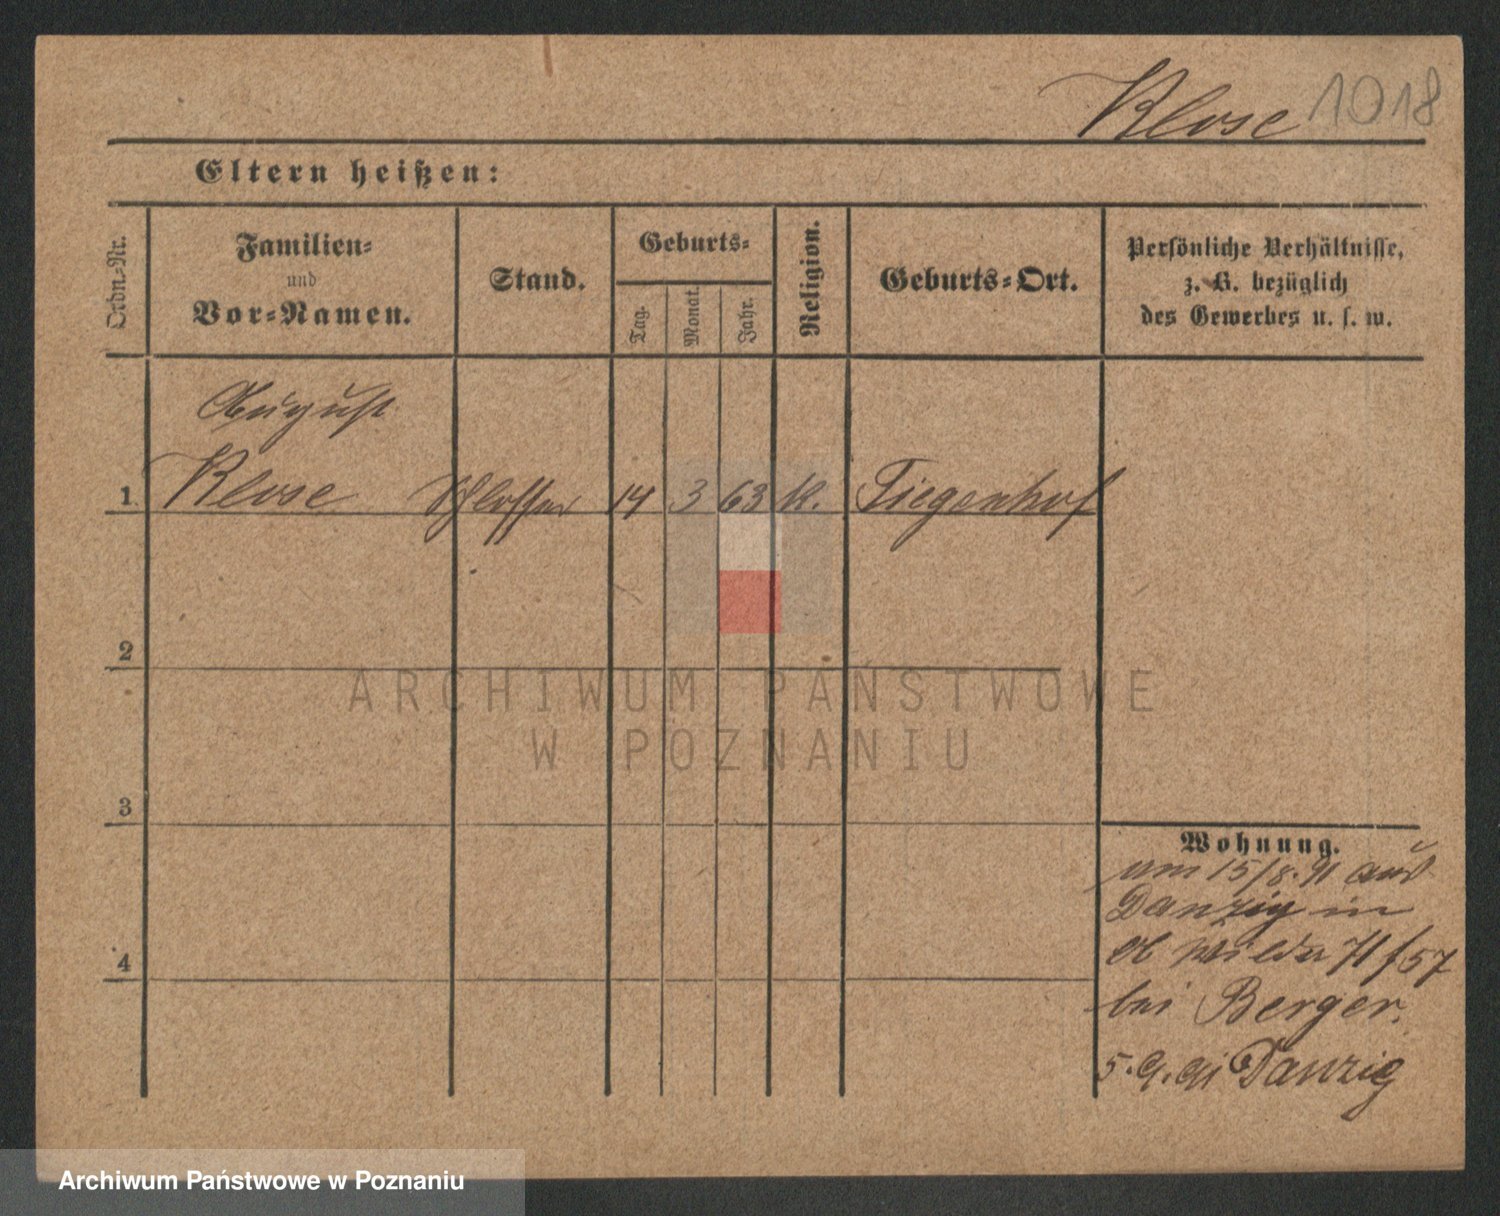 Klose 1018
Eltern heißen:
Ordn.-Nr.
Familien-
und
Vor-Namen.
Stand.
Geburts-
Tag.
Monat.
Jahr.
Religion.
Geburts-Ort.
Persönliche Verhältnisse,
z. B. bezüglich
des Gewerbes u. s. w.
August
1 Klose Schlosser 14 3 63 K. Tiegenhof
2
3
4
Wohnung.
am 15/8.91 aus
Danzig in
Ob Wilda 71 f 57
bei Berger.
5.9.91 Danzig
ARCHIWUM PAŃSTWOWE
W POZNANIU
Archiwum Państwowe w Poznaniu